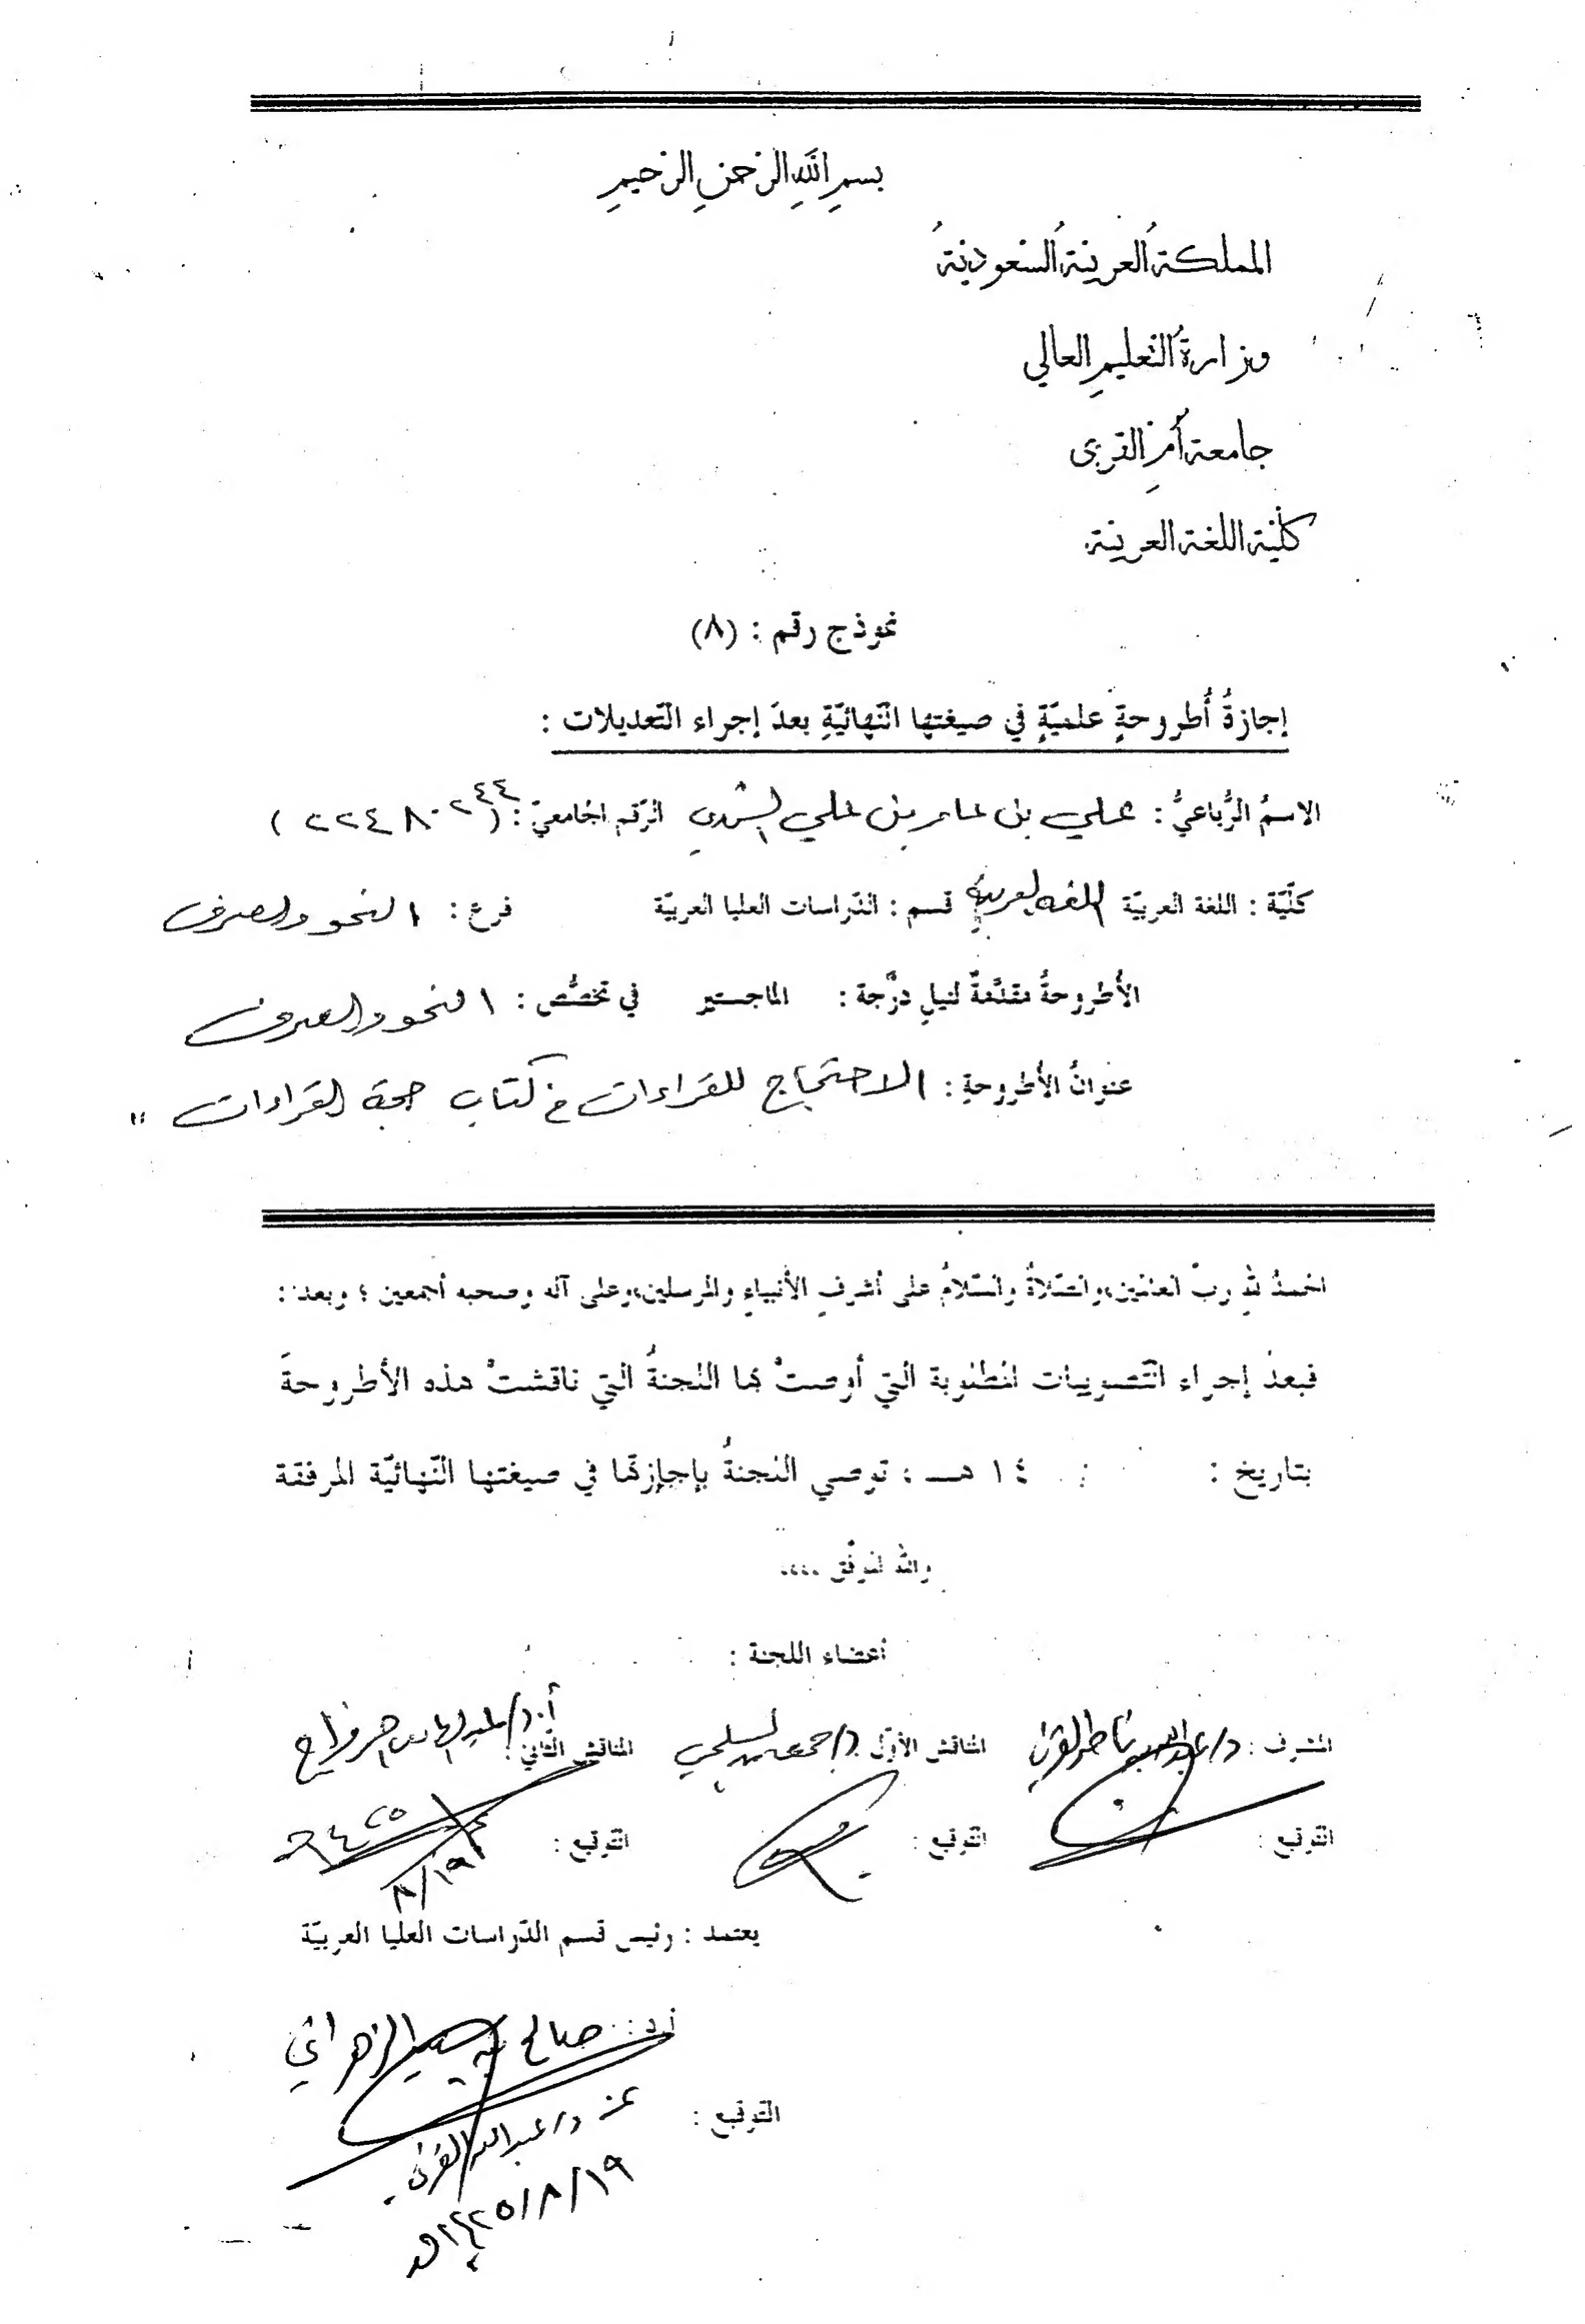 بسم الله الرحمن الرحيم
المملكة العربية السعودية
وزارة التعليم العالي
جامعة أم القرى
كلية اللغة العربية
نموذج رقم : (٨)
إجازةُ أُطروحةٍ علميّةٍ في صيغتها النّهائيّةِ بعدَ إجراء التّعديلات :
الاسمُ الرُّباعيُّ : علي بن عامر بن علي الشهري الرّقم الجامعيّ : (
كلّيّة : اللغة العربيّة اللغة العربية قسم : الدّراسات العليا العربيّة فرع : النحو والصرف
الأُطروحةُ مقدَّمةٌ لنيلِ درَجة : الماجستير في تخصُّص : النحو والصرف
عنوانُ الأُطروحةِ : الاحتجاج للقراءات في كتاب حجة القراءات "
الحمدُ للهِ ربّ العالمين،والصّلاةُ والسّلامُ على أشرفِ الأنبياءِ والمرسلين،وعلى آله وصحبه أجمعين ؛ وبعد :
فبعدَ إجراء التّصويبات المطلوبة التي أوصتْ بها اللجنةُ التي ناقشتْ هذه الأطروحةَ
بتاريخ : ١٤ هـ ؛ توصي اللجنةُ بإجازتها في صيغتها النّهائيّة المرفقة
والله الموفّق ....
أعضاء اللجنة :
المشرف : د/ عبدالله القرني المناقش الأوّل د/ السلمي المناقش الثّاني : أ.د/
التّوقيع : التّوقيع : التّوقيع :
٨/١٩
يعتمد : رئيس قسم الدّراسات العليا العربيّة
أ.د : صالح الزهراني
التّوقيع :
عنه د/ عبدالله القرني
١٤٢٥/٨/١٩هـ